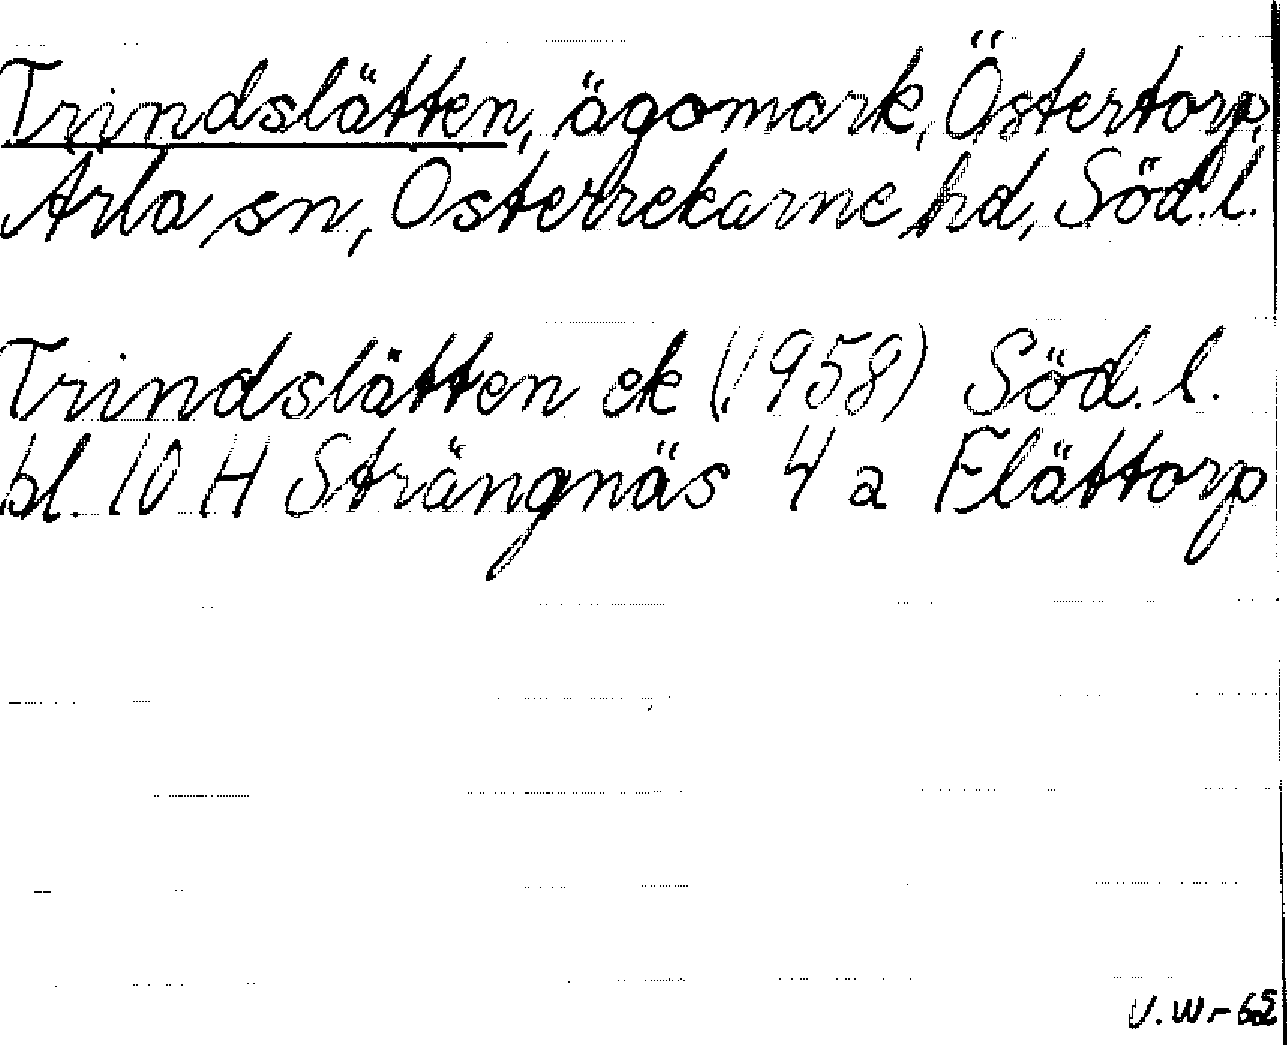 Trindslätten, ägomark, Östertorp,
Arla sn, Österrekarne hd, Söd.l.
Trindslätten ek (1958) Söd. l.
bl. 10 H Strängnäs 4 a Flättorp
V.W-65